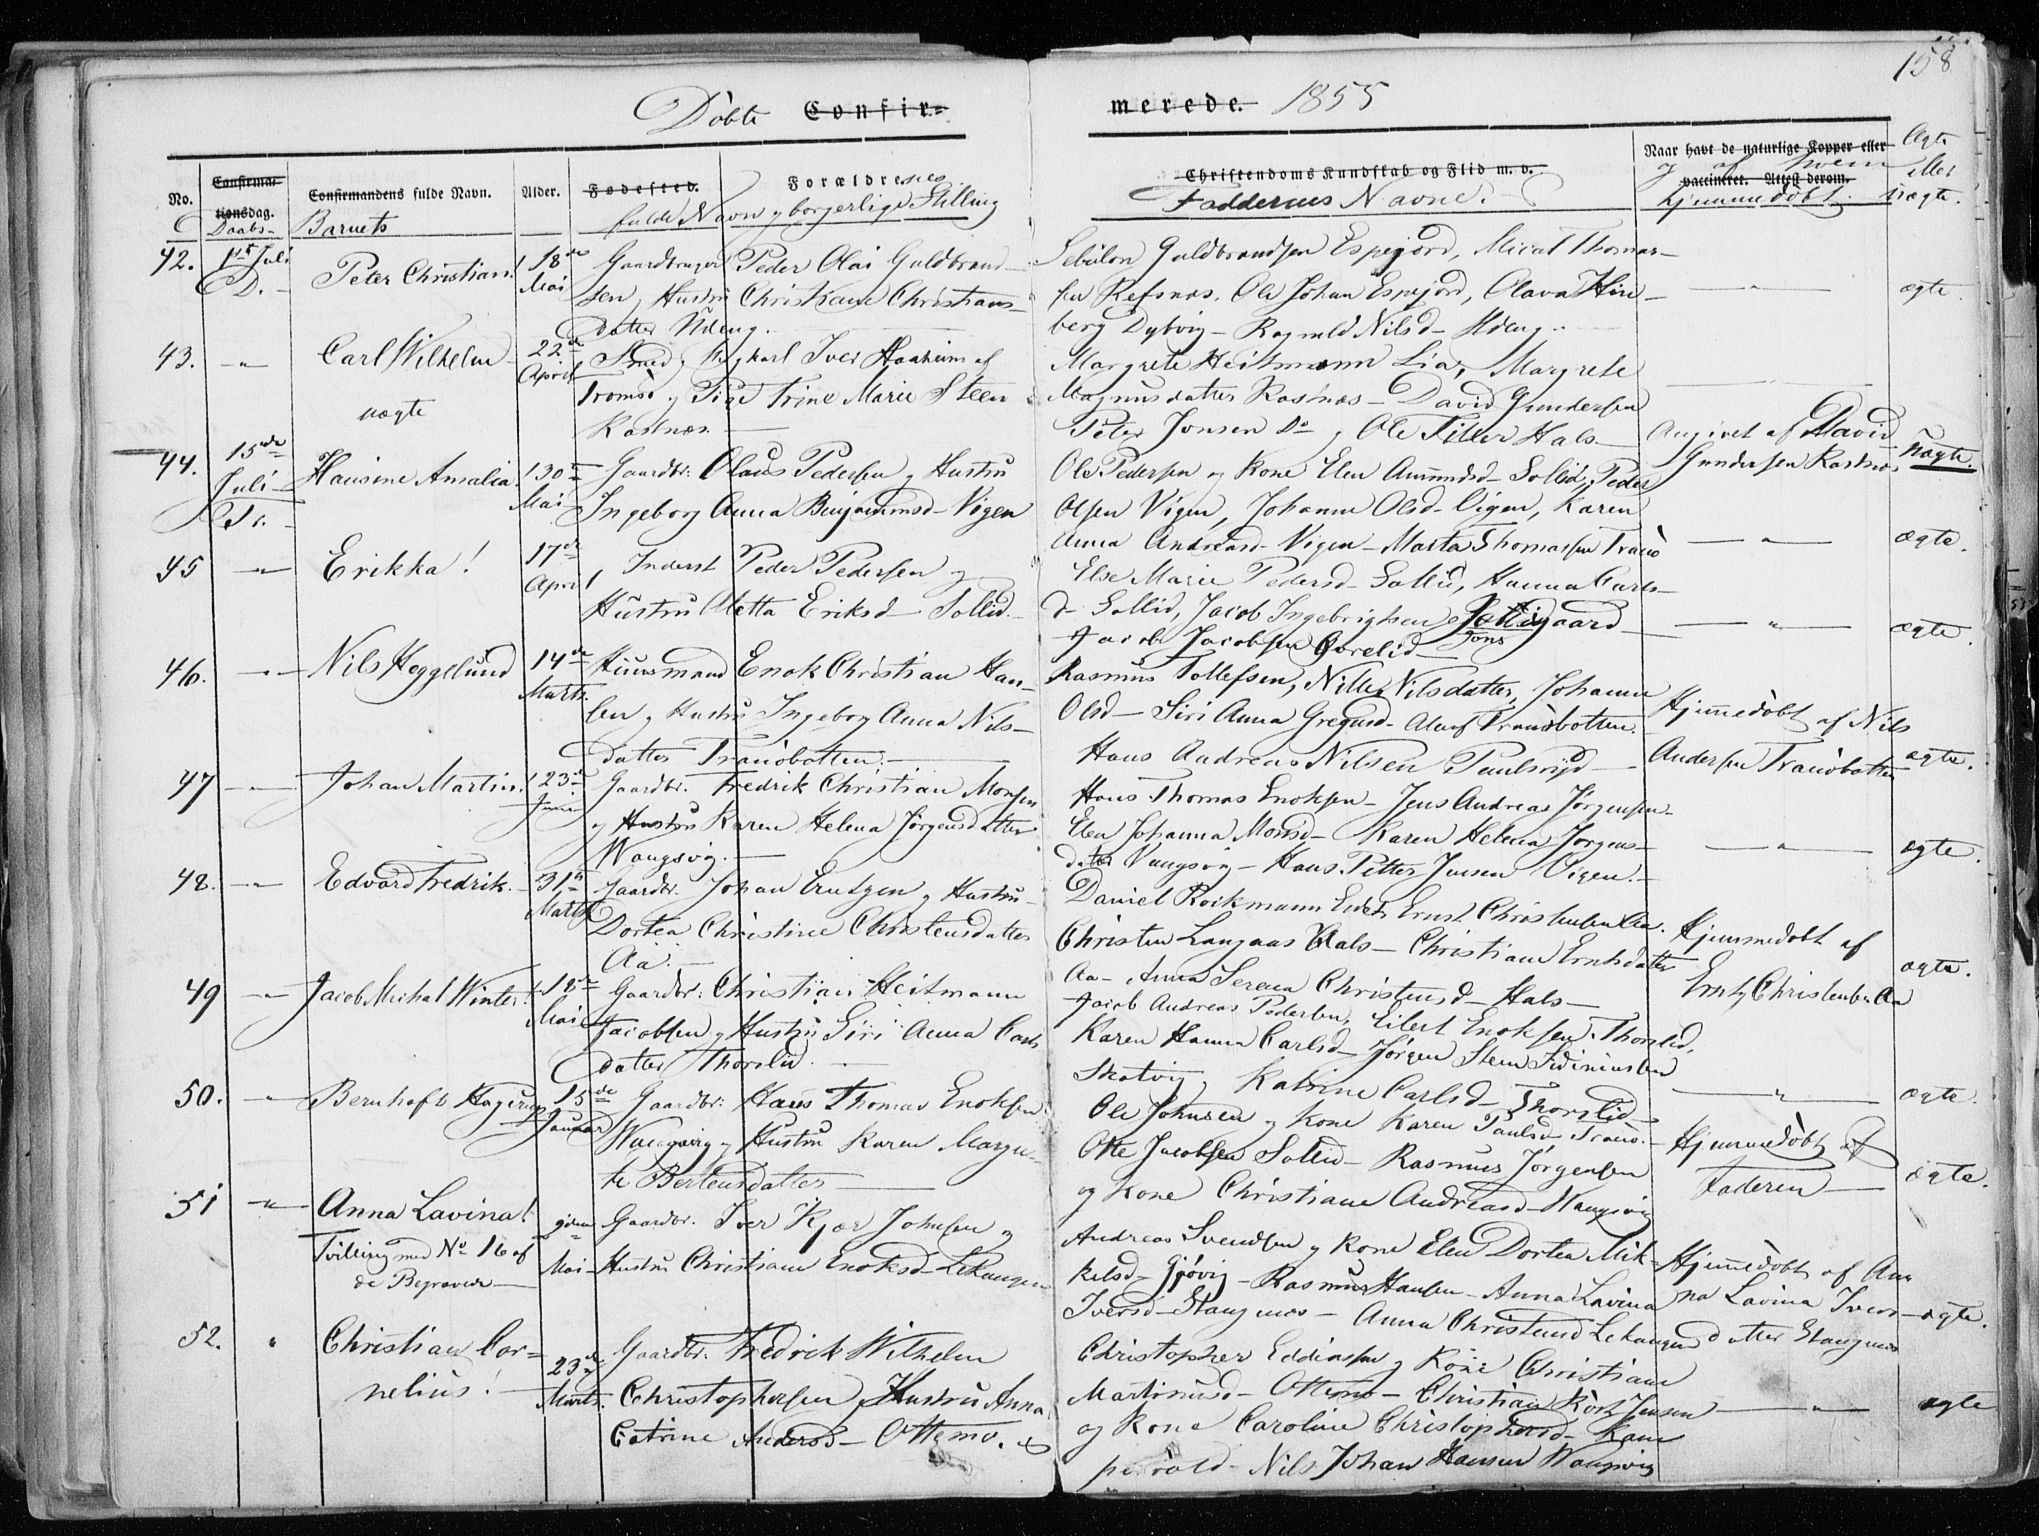 158
Döbte Confir-
merede. 1855
No.
Confirmationsdag.
Daabs-
D.
Confirmandens fulde Navn.
Barnets
Alder.
Fødested.
Forældrenes
fulde Navn og borgerlige Stilling
Christendoms Kundskab og Flid m. v.
Faddernes Navne.
Naar havt de naturlige Kopper eller
vaccineret. Attest derom.
og af hvem
hjemmedöbt.
Ægte
eller
uægte.
42. 1st Juli Peter Christian! 18de Mai
Gaardbruger Peder Olai Guldbrand-
sen og Hustru Christiane Christians-
datter Udeng.
Sebulon Guldbrandsen Espejord, Micael Thomas-
sen Refsnæs. Ole Johan Espejord, Olava Hin-
berg Dybvig - Ragnild Nilsd - Udeng.
— " — ægte.
43. - " - Carl Wilhelm 22de April
uægte
Smed og Ungkarl Iver Haaheim af
Tromsö og Pige Trine Marie Steen
Rosnæs.
Margrete Heitmann Lia, Margrete
Magnusdatter Rosnæs - David Gundersen
Peter Jonsen Do og Ole Tiller Hals.
Angivet af David
Gundersen Rosnæs uægte.
44. 15de Juli Hansine Amalia! 30te Mai
Gaardbr: Olaus Pedersen og Hustru
Ingeborg Anna Binjaminsd - Vigen
Ole Pedersen og Kone Elen Amundsd - Sollid, Peder
Olsen Vigen, Johanna Olsd - Vigen, Karen
Anna Andreasd - Vigen - Marta Thomassen Tranö
— " — ægte.
45 - " - Erikka! 17de April
Inderst Peder Pedersen og
Hustru Aletta Eriksd - Sollid.
Else Marie Pedersd - Sollid, Hanna Carls-
d - Sollid, Jacob Ingebrigtsen
Jacob Jacobsen
— " — ægte.
46. - " - Nils Heggelund 14de Marts.
Huusmand Enok Christian Han-
sen og Hustru Ingeborg Anna Nils-
datter Tranöbotten.
Rasmus Tollefsen, Nille Nilsdatter, Johanna
Olsd - Siri Anna Gregusd - Tranöbotten.
Hans Andreas Nilsen Paulsrijd
Hjemmedöbt af Nils
Andersen Tranöbotten ægte.
47 - " - Johan Martin! 23de Juni
Gaardbr. Fredrik Christian Monsen
og Hustru Karen Helena Jörgensdatter
Wangsvig.
Hans Thomas Enoksen - Jens Andreas Jörgensen
Elen Johanna Monsd - Karen Helena Jörgens-
datter Vangsvig - Hans Petter Jensen Vigen.
— " — ægte.
48. - " - Edvard Fredrik. 31te Marts
Gaardbr. Johan Erntzen og Hustru
Dortea Christine Christensdatter
Aa.
Daniel Rockmann Eidet, Ernst Christensen Aa.
Christen Langaas Hals - Christiane Ernstdatter
Aa - Anna Serena Christensd - Hals
Hjemmedöbt af
Ernst Christensen Aa ægte.
49 - " - Jacob Michal Winter! 18de Mai
Gaardbr: Christian Heitmann
Jacobsen og Hustru Siri Anna Carls
datter Thorslid.
Jacob Andreas Pedersen, Eilert Enoksen, Thorslid,
Karen Hanna Carlsd - Jörgen Steen
Skatvig, Katrine Carlsd - Thorslid
— " — ægte.
50. - " - Bernhoft Hagerup 15de Januar
Gaardbr: Hans Thomas Enoksen
Wangsvig og Hustru Karen Margre-
te Berteusdatter
Ole Johnsen og Kone Karen Paulsd - Tranö.
Otte Jacobsen Sollid - Rasmus Jörgensen
og Kone Christiane Andreasd - Wangsvig
Hjemmedöbt af
Faderen ægte.
51 - " - Anna Lavina! 9den Mai
Tvilling med No 16 af
de Begravede
Gaardbr. Iver Kjær Johnsen og
Hustru Christiane Enoksd - Lekangen
Andreas Svendsen og Kone Elen Dortea Mik-
kelsd - Gjövig - Rasmus Hansen - Anna Lavina
Iversd - Stangnæs - Anna Christensd Lekangen
Hjemmedöbt af An-
na Lavina Ivers-
datter Stangnæs ægte.
52. " Christian Cor-
nelius! 23de Marts.
Gaardbr. Fredrik Wilhelm
Christophersen og Hustru Anna
Catrine Andersd - Ottemo.
Christopher Eddiassen og Kone Christiane
Martinusd - Ottemo - Christian Jensen
og Kone Caroline Christophersd -
Nils Johan Hansen Wangsvig
— " — ægte